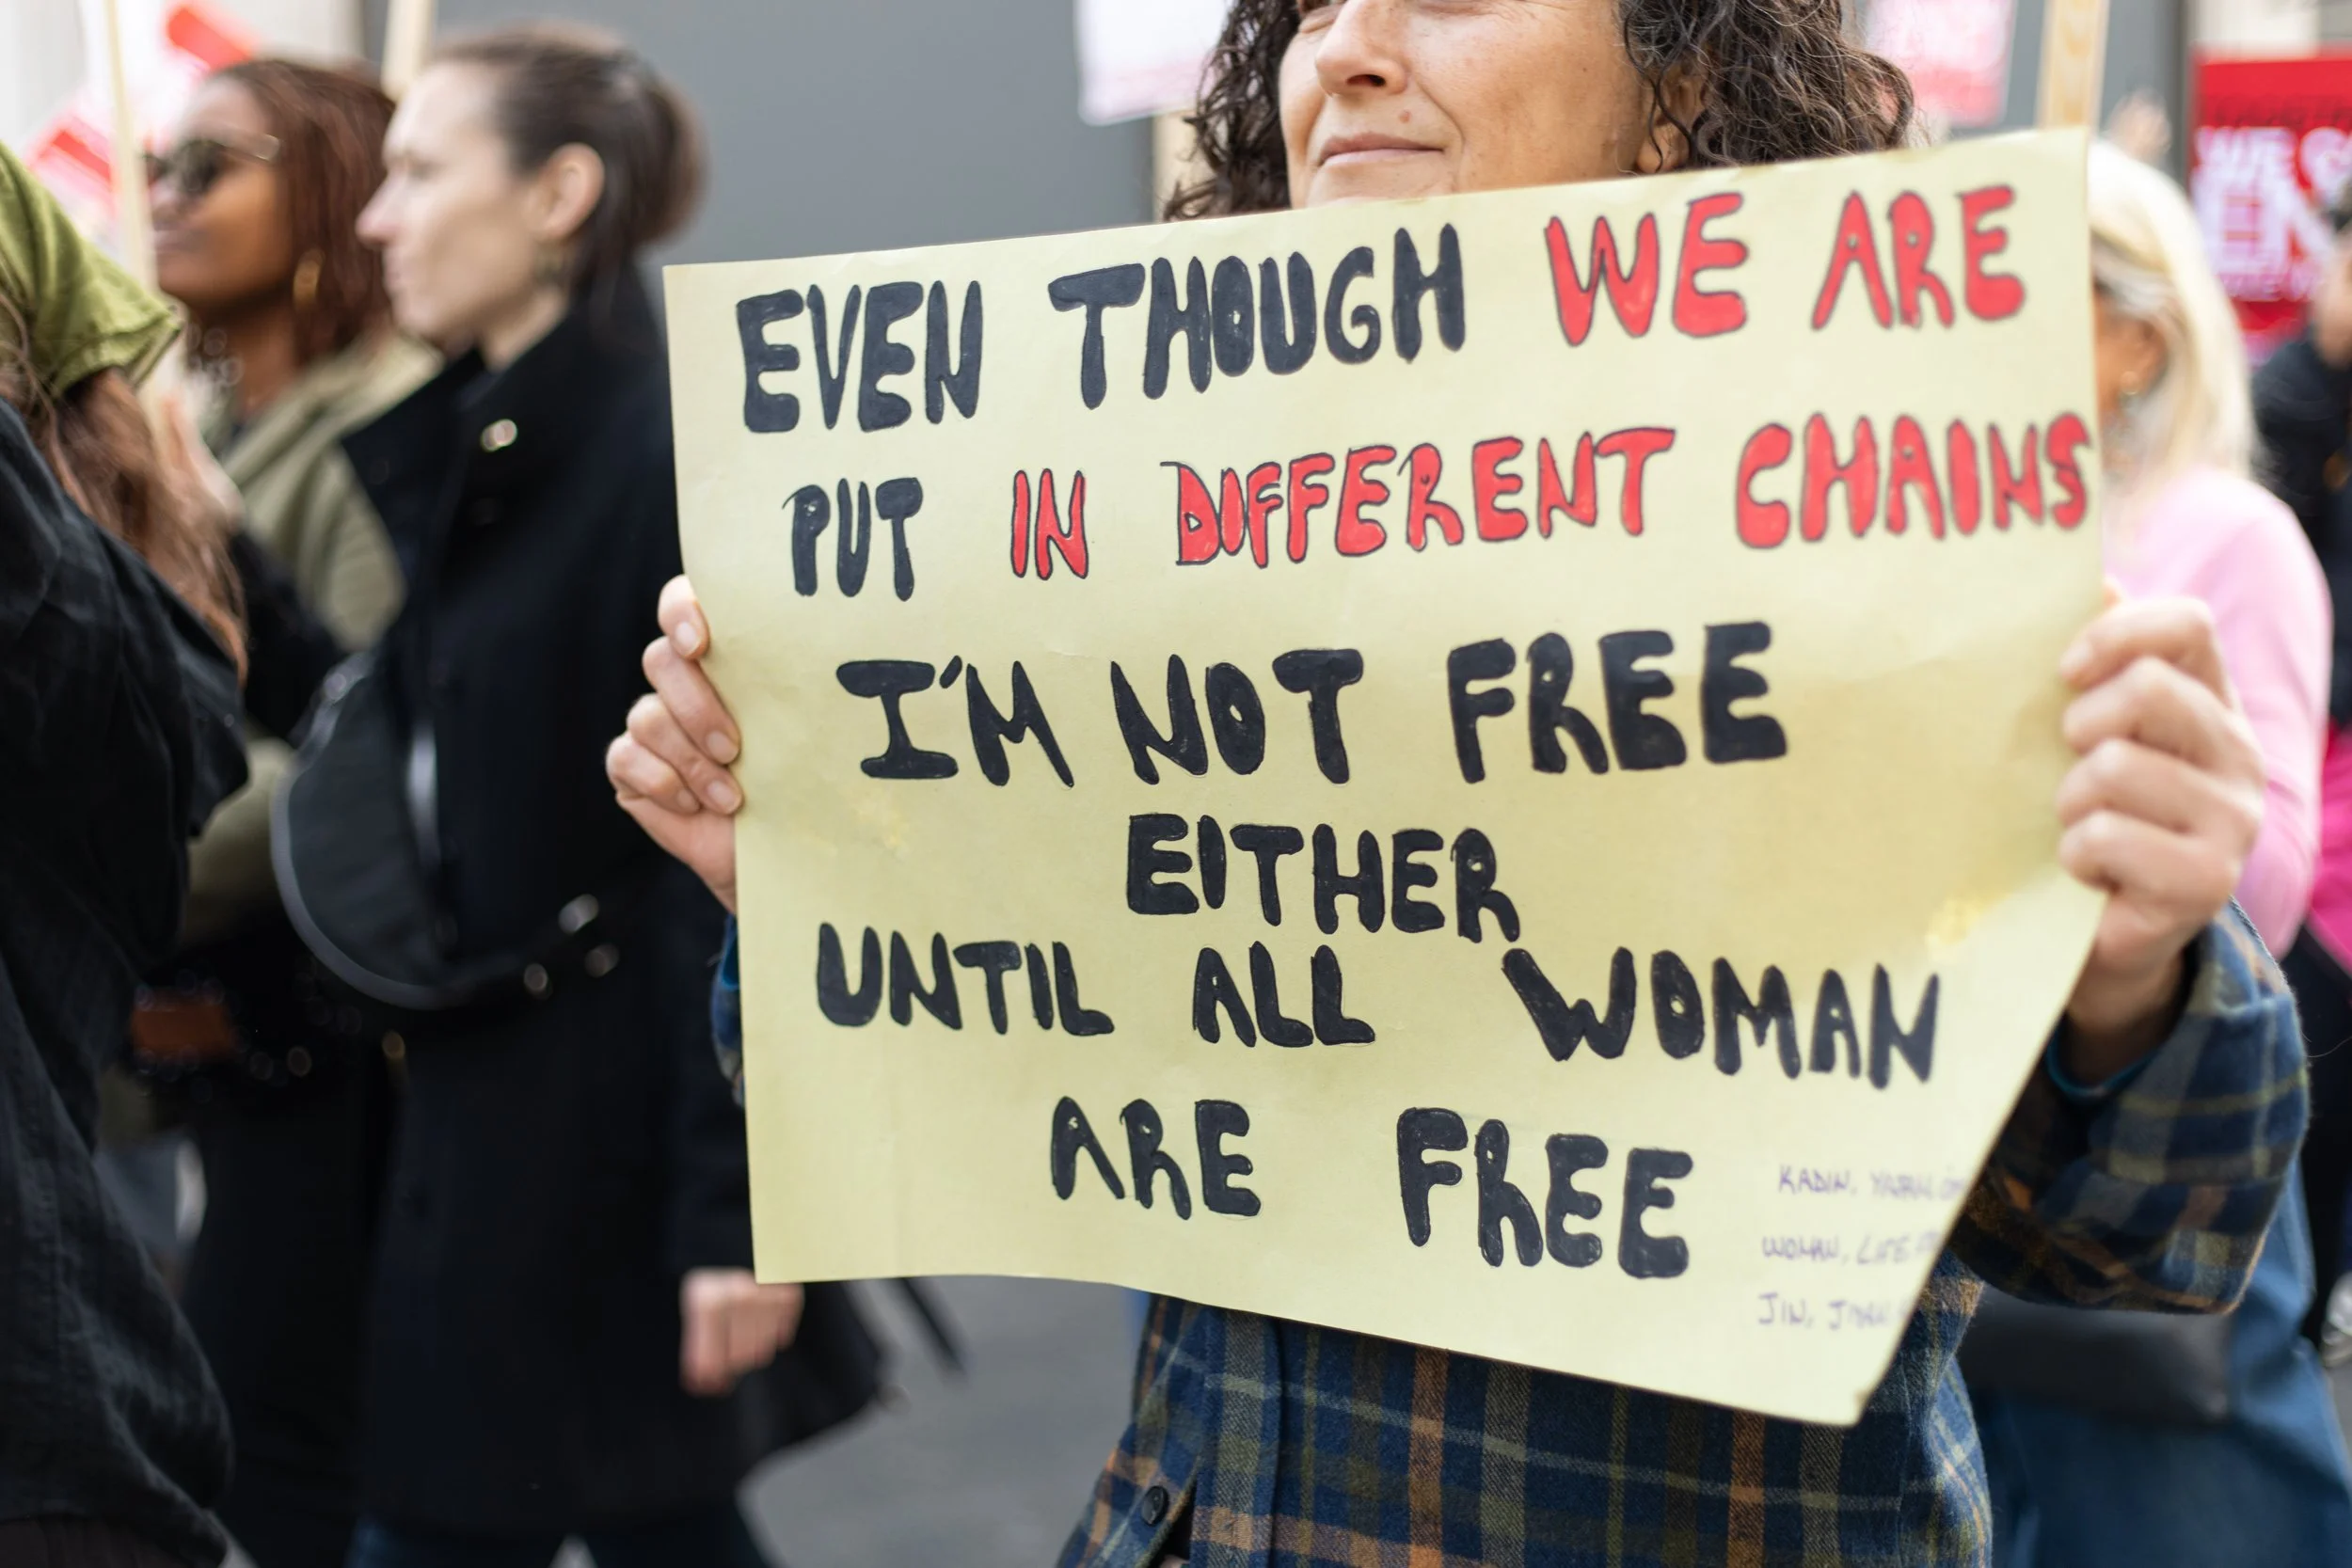 EVEN THOUGH WE ARE
PUT IN DIFFERENT CHAINS
I'M NOT FREE
EITHER
UNTIL ALL WOMAN
ARE FREE
KADIN,
WOMAN, LIFE
JIN,
WE